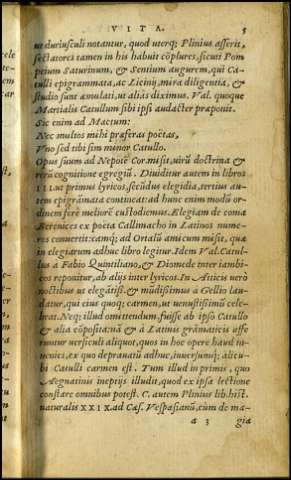 VITA. 5
ut duriusculi notantur, quod uterq; Plinius asserit,
sectatores tamen in his habuit cōplures, sicuti Pom
peium Saturinum, & Sentium augurem, qui Ca-
tulli epigrammata, ac Licinij, mira diligentia, &
studio sunt æmulati, ut aliâs diximus. Val. quoque
Martialis Catullum sibi ipsi audacter præponit.
Sic enim ad Macrum:
Nec multos mihi præferas poëtas,
Vno sed tibi sim minor Catullo.
Opus suum ad Nepotē Cor. misit, uirū doctrina &
rerū cognitione egregiū. Diuiditur autem in libros
III. ac primus lyricos, secūdus elegidia, tertius au-
tem epigrāmata continet: ad hunc enim modū or-
dinem ferè meliorē custodiemus. Elegiam de coma
Berenices ex poëta Callimacho in Latinos nume-
ros conuertit: eamq; ad Ortalū amicum misit, quæ
in elegiarum adhuc libro legitur. Idem Val. Catul-
lus à Fabio Quintiliano, & Diomede inter iambi-
cos reponitur, ab alijs inter lyricos. In Atticis uerò
noctibus ut elegātiss. & mūdissimus à Gellio lau-
datur, qui eius quoq; carmen, ut uenustissimū cele-
brat. Neq; illud omittendum, fuisse ab ipso Catullo
& alia cōposita: nā & à Latinis grāmaticis affe-
runtur uersiculi aliquot, quos in hoc opere haud in-
uenies, ex quo deprauatū adhuc, inuersumq; alicu-
bi Catulli carmen est. Tum illud in primis, quo
Aegnatinis ineptijs illudit, quod ex ipsa lectione
constare omnibus potest. C. autem Plinius lib. hist.
naturalis XXIX. ad Cæs. Vespasianū, cùm de ma-
a 3 gia